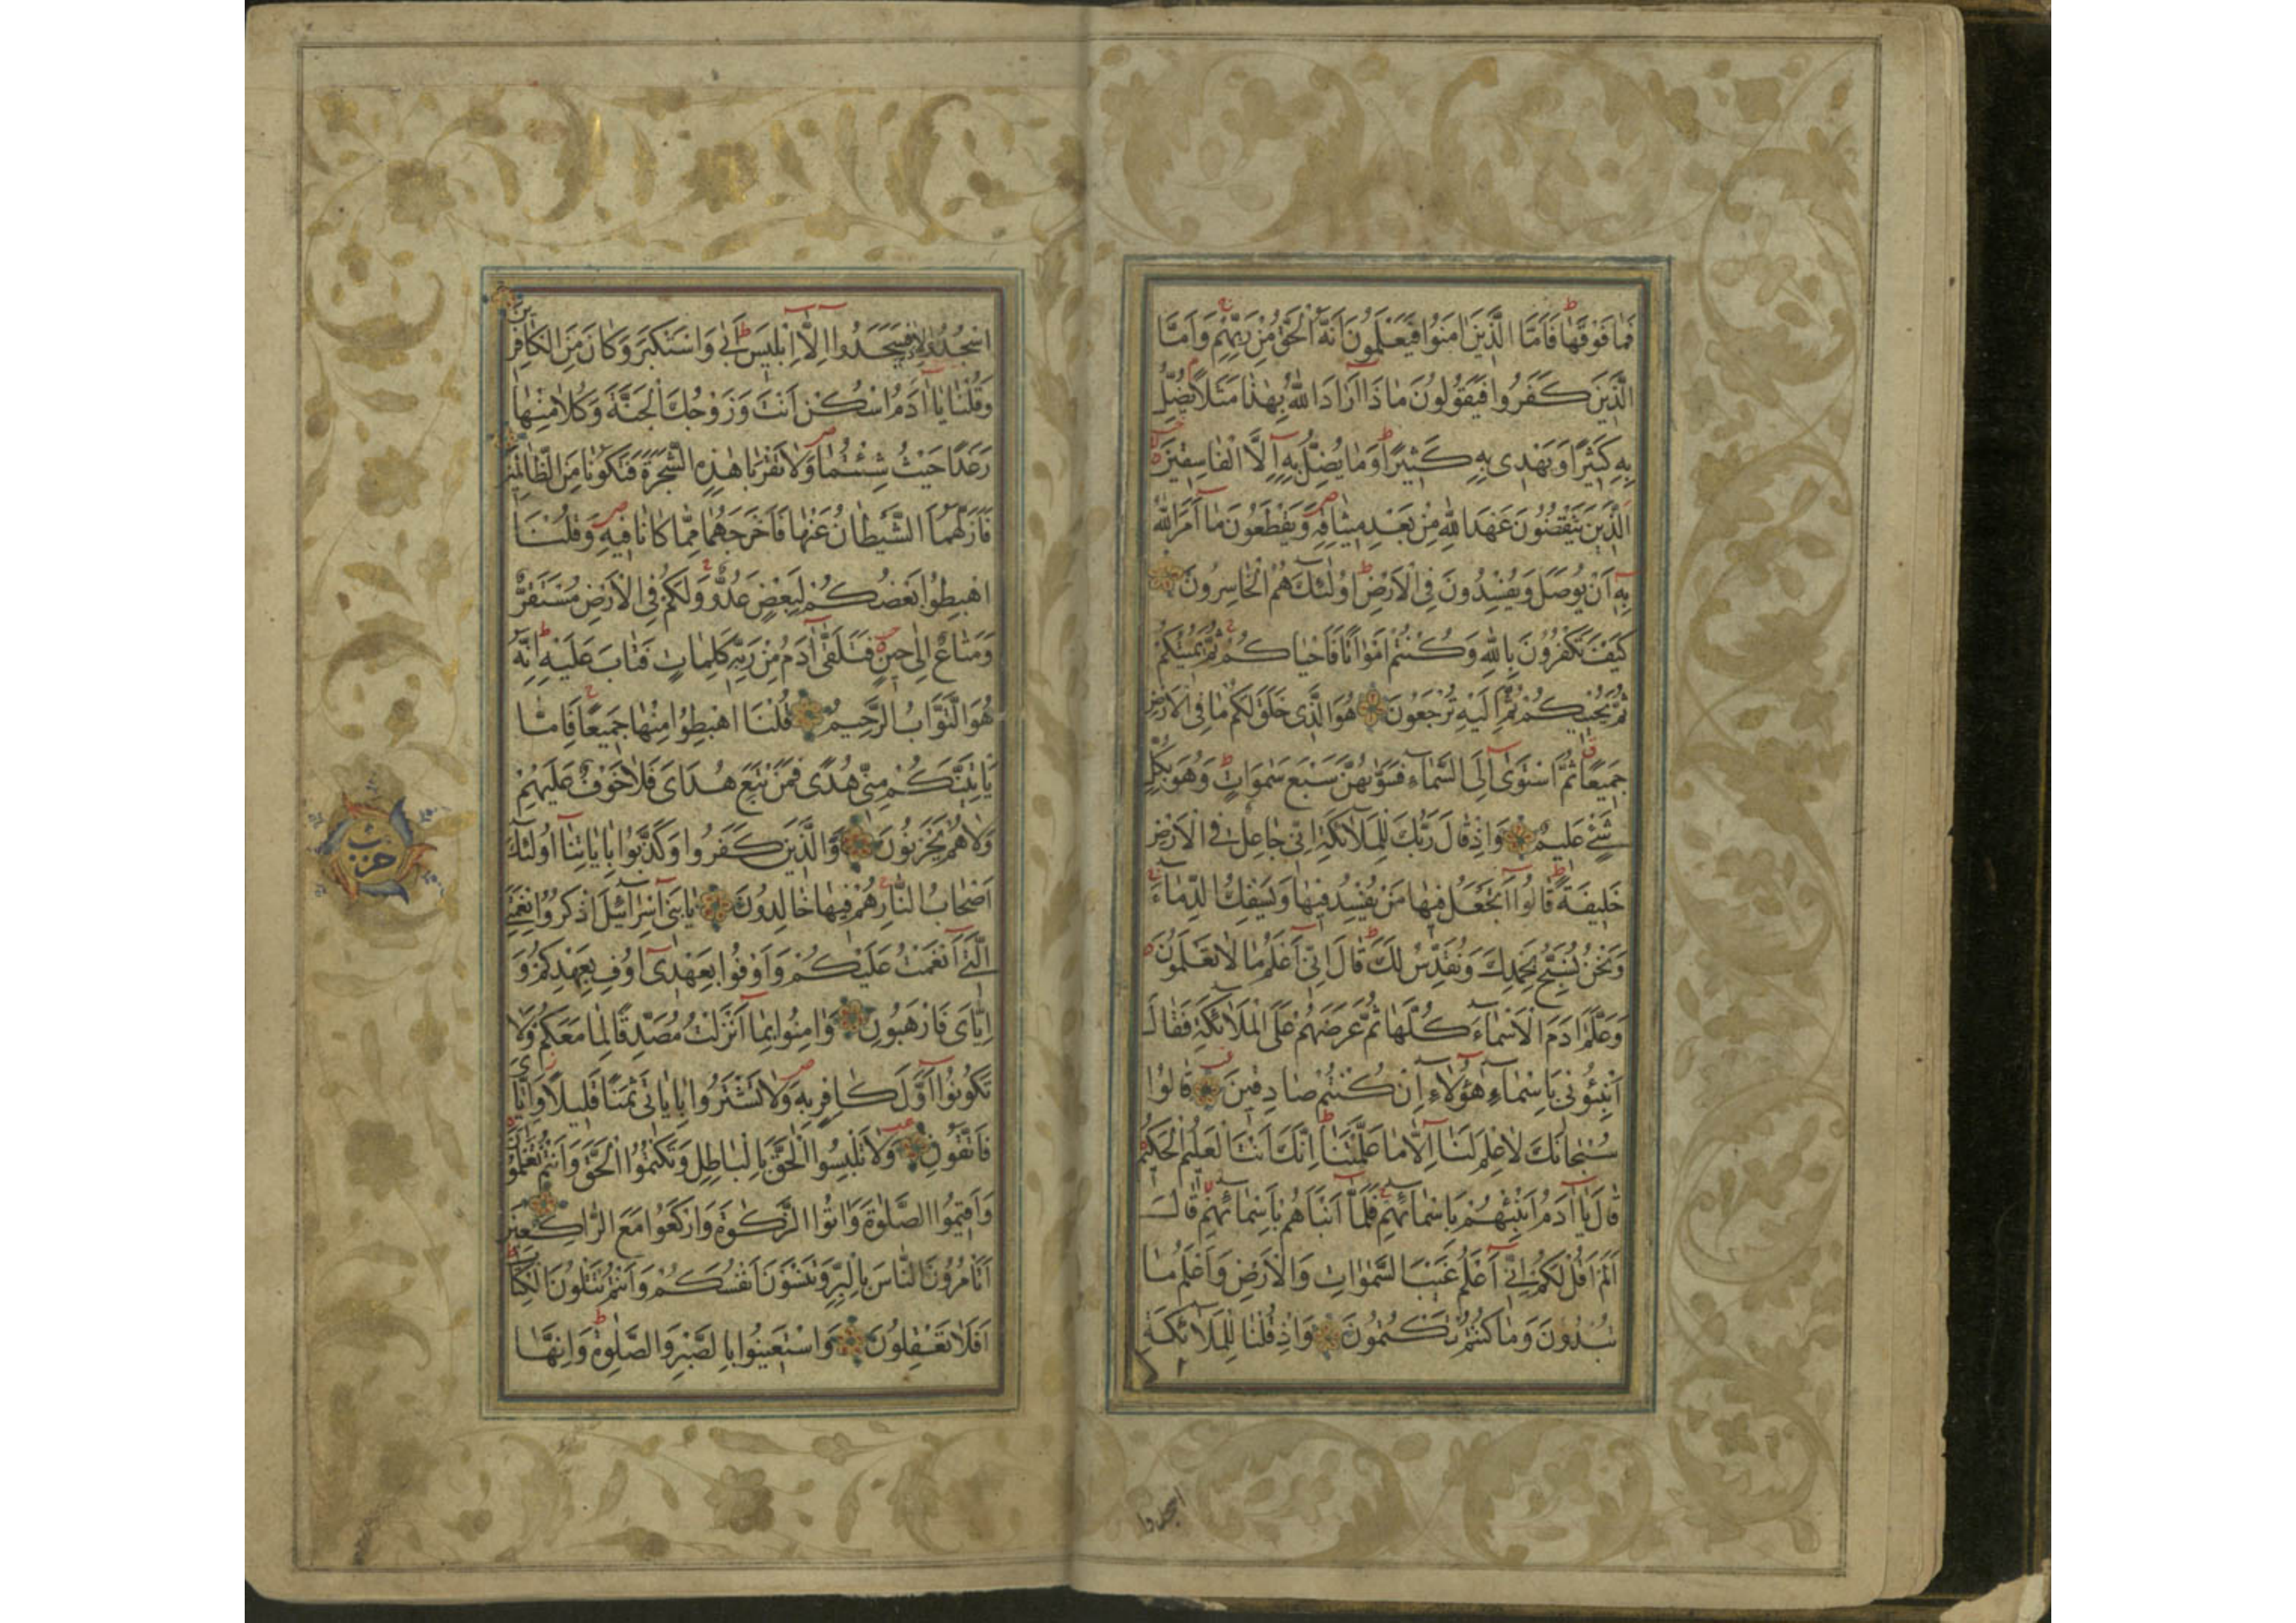 فَمٰا فَوْقَهٰا فَاَمَّا الَّذِينَ اٰمَنُوا فَيَعْلَمُونَ اَنَّهُ الْحَقُّ مِنْ رَبِّهِمْ وَاَمَّا
الَّذِينَ كَفَرُوا فَيَقُولُونَ مٰا ذَا اَرَادَ اللّٰهُ بِهٰذٰا مَثَلًا يُضِلُّ
بِهِ كَثِيرًا وَيَهْدِى بِهِ كَثِيرًا وَمٰا يُضِلُّ بِهِ اِلَّا الْفٰاسِقِينَ
الَّذِينَ يَنْقُضُونَ عَهْدَ اللّٰهِ مِنْ بَعْدِ مِيثٰاقِهِ وَيَقْطَعُونَ مٰا اَمَرَ اللّٰهُ
بِهِ اَنْ يُوصَلَ وَيُفْسِدُونَ فِى الْاَرْضِ اُولٰئِكَ هُمُ الْخٰاسِرُونَ
كَيْفَ تَكْفُرُونَ بِاللّٰهِ وَكُنْتُمْ اَمْوٰاتًا فَاَحْيٰاكُمْ ثُمَّ يُمِيتُكُمْ
ثُمَّ يُحْيِيكُمْ ثُمَّ اِلَيْهِ تُرْجَعُونَ هُوَ الَّذِى خَلَقَ لَكُمْ مٰا فِى الْاَرْضِ
جَمِيعًا ثُمَّ اسْتَوٰى اِلَى السَّمٰاءِ فَسَوّٰىهُنَّ سَبْعَ سَمٰوَاتٍ وَهُوَ بِكُلِّ
شَىْءٍ عَلِيمٌ وَاِذْ قٰالَ رَبُّكَ لِلْمَلٰائِكَةِ اِنِّى جٰاعِلٌ فِى الْاَرْضِ
خَلِيفَةً قٰالُوا اَتَجْعَلُ فِيهٰا مَنْ يُفْسِدُ فِيهٰا وَيَسْفِكُ الدِّمٰاءَ
وَنَحْنُ نُسَبِّحُ بِحَمْدِكَ وَنُقَدِّسُ لَكَ قٰالَ اِنِّى اَعْلَمُ مٰا لٰا تَعْلَمُونَ
وَعَلَّمَ اٰدَمَ الْاَسْمٰاءَ كُلَّهٰا ثُمَّ عَرَضَهُمْ عَلَى الْمَلٰائِكَةِ فَقٰالَ
اَنْبِئُونِى بِاَسْمٰاءِ هٰؤُلٰاءِ اِنْ كُنْتُمْ صٰادِقِينَ قٰالُوا
سُبْحٰانَكَ لٰا عِلْمَ لَنٰا اِلَّا مٰا عَلَّمْتَنٰا اِنَّكَ اَنْتَ الْعَلِيمُ الْحَكِيمُ
قٰالَ يٰا اٰدَمُ اَنْبِئْهُمْ بِاَسْمٰائِهِمْ فَلَمَّا اَنْبَاَهُمْ بِاَسْمٰائِهِمْ قٰالَ
اَلَمْ اَقُلْ لَكُمْ اِنِّى اَعْلَمُ غَيْبَ السَّمٰوَاتِ وَالْاَرْضِ وَاَعْلَمُ مٰا
تُبْدُونَ وَمٰا كُنْتُمْ تَكْتُمُونَ وَاِذْ قُلْنٰا لِلْمَلٰائِكَةِ
اسجدوا
اسْجُدُوا لِاٰدَمَ فَسَجَدُوا اِلَّا اِبْلِيسَ اَبٰى وَاسْتَكْبَرَ وَكٰانَ مِنَ الْكٰافِرِينَ
وَقُلْنٰا يٰا اٰدَمُ اسْكُنْ اَنْتَ وَزَوْجُكَ الْجَنَّةَ وَكُلٰا مِنْهٰا
رَغَدًا حَيْثُ شِئْتُمٰا وَلٰا تَقْرَبٰا هٰذِهِ الشَّجَرَةَ فَتَكُونٰا مِنَ الظّٰالِمِينَ
فَاَزَلَّهُمَا الشَّيْطٰانُ عَنْهٰا فَاَخْرَجَهُمٰا مِمّٰا كٰانٰا فِيهِ وَقُلْنَا
اهْبِطُوا بَعْضُكُمْ لِبَعْضٍ عَدُوٌّ وَلَكُمْ فِى الْاَرْضِ مُسْتَقَرٌّ
وَمَتٰاعٌ اِلٰى حِينٍ فَتَلَقّٰى اٰدَمُ مِنْ رَبِّهِ كَلِمٰاتٍ فَتٰابَ عَلَيْهِ اِنَّهُ
هُوَ التَّوَّابُ الرَّحِيمُ قُلْنَا اهْبِطُوا مِنْهٰا جَمِيعًا فَاِمَّا
يَأْتِيَنَّكُمْ مِنِّى هُدًى فَمَنْ تَبِعَ هُدَاىَ فَلٰا خَوْفٌ عَلَيْهِمْ
وَلٰا هُمْ يَحْزَنُونَ وَالَّذِينَ كَفَرُوا وَكَذَّبُوا بِاٰيٰاتِنٰا اُولٰئِكَ
اَصْحٰابُ النَّارِ هُمْ فِيهٰا خٰالِدُونَ يٰا بَنِى اِسْرٰائِيلَ اذْكُرُوا نِعْمَتِىَ
الَّتِى اَنْعَمْتُ عَلَيْكُمْ وَاَوْفُوا بِعَهْدِى اُوفِ بِعَهْدِكُمْ وَ
اِيّٰاىَ فَارْهَبُونِ وَاٰمِنُوا بِمٰا اَنْزَلْتُ مُصَدِّقًا لِمٰا مَعَكُمْ وَلٰا
تَكُونُوا اَوَّلَ كٰافِرٍ بِهِ وَلٰا تَشْتَرُوا بِاٰيٰاتِى ثَمَنًا قَلِيلًا وَاِيّٰاىَ
فَاتَّقُونِ وَلٰا تَلْبِسُوا الْحَقَّ بِالْبٰاطِلِ وَتَكْتُمُوا الْحَقَّ وَاَنْتُمْ تَعْلَمُونَ
وَاَقِيمُوا الصَّلٰوةَ وَاٰتُوا الزَّكٰوةَ وَارْكَعُوا مَعَ الرّٰاكِعِينَ
اَتَأْمُرُونَ النّٰاسَ بِالْبِرِّ وَتَنْسَوْنَ اَنْفُسَكُمْ وَاَنْتُمْ تَتْلُونَ الْكِتٰابَ
اَفَلٰا تَعْقِلُونَ وَاسْتَعِينُوا بِالصَّبْرِ وَالصَّلٰوةِ وَاِنَّهٰا
حزب